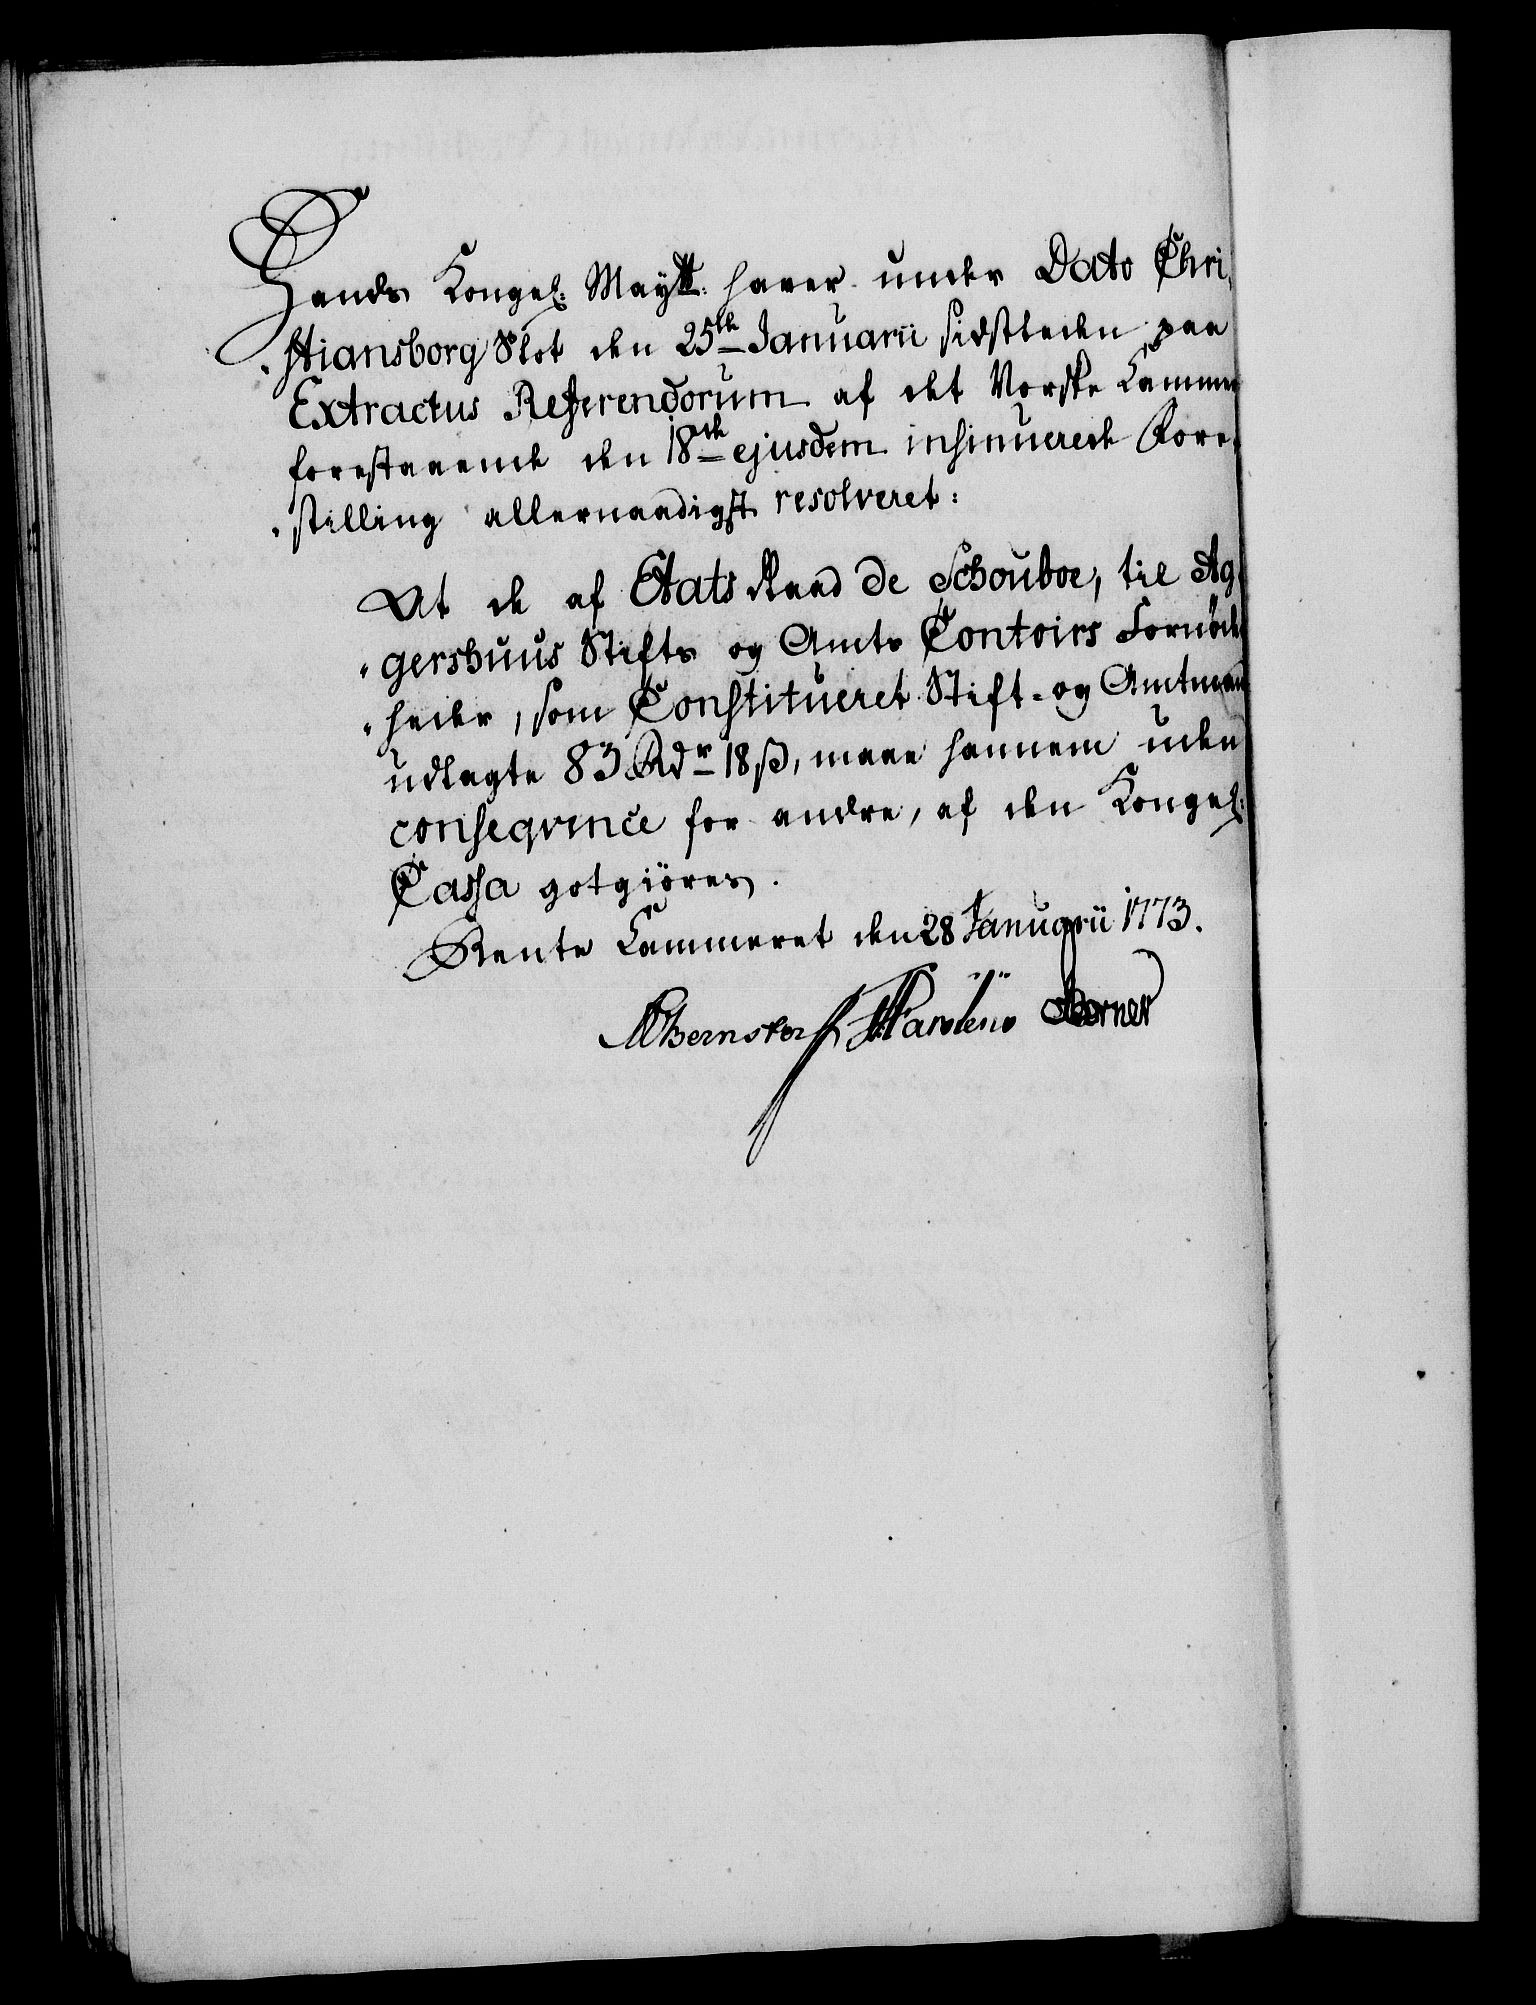 Hands Kongel: Maytt: haver under Dato Chri„
„stiansborg Slot den 25de Januarii sidstleden paa
Extractus Referendorum af det Norske Cammer
forestaaende den 18de ejusdem insinuerede Fore„
„stilling allernaadigst resolveret:
At de af Etats Raad de Schouboe, til Ag„
„gershuus Stifts og Amts Contoirs Fornöden
„heder, som Constitueret Stift- og Amtmand
udlagte 83 Rdr 18 ß, maae hannem uden
conseqvence for andre, af den Kongel:
Cassa gotgiöres.
Rente Cammeret den 28 Januarii 1773.
Bernstorff